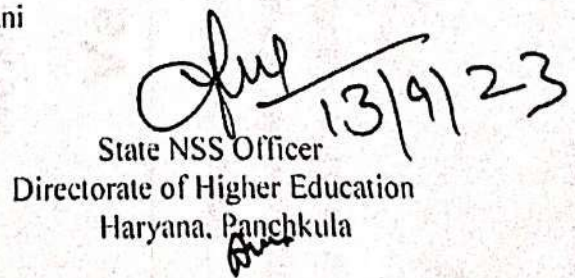 ni
13/9/23
State NSS Officer
Directorate of Higher Education
Haryana, Panchkula